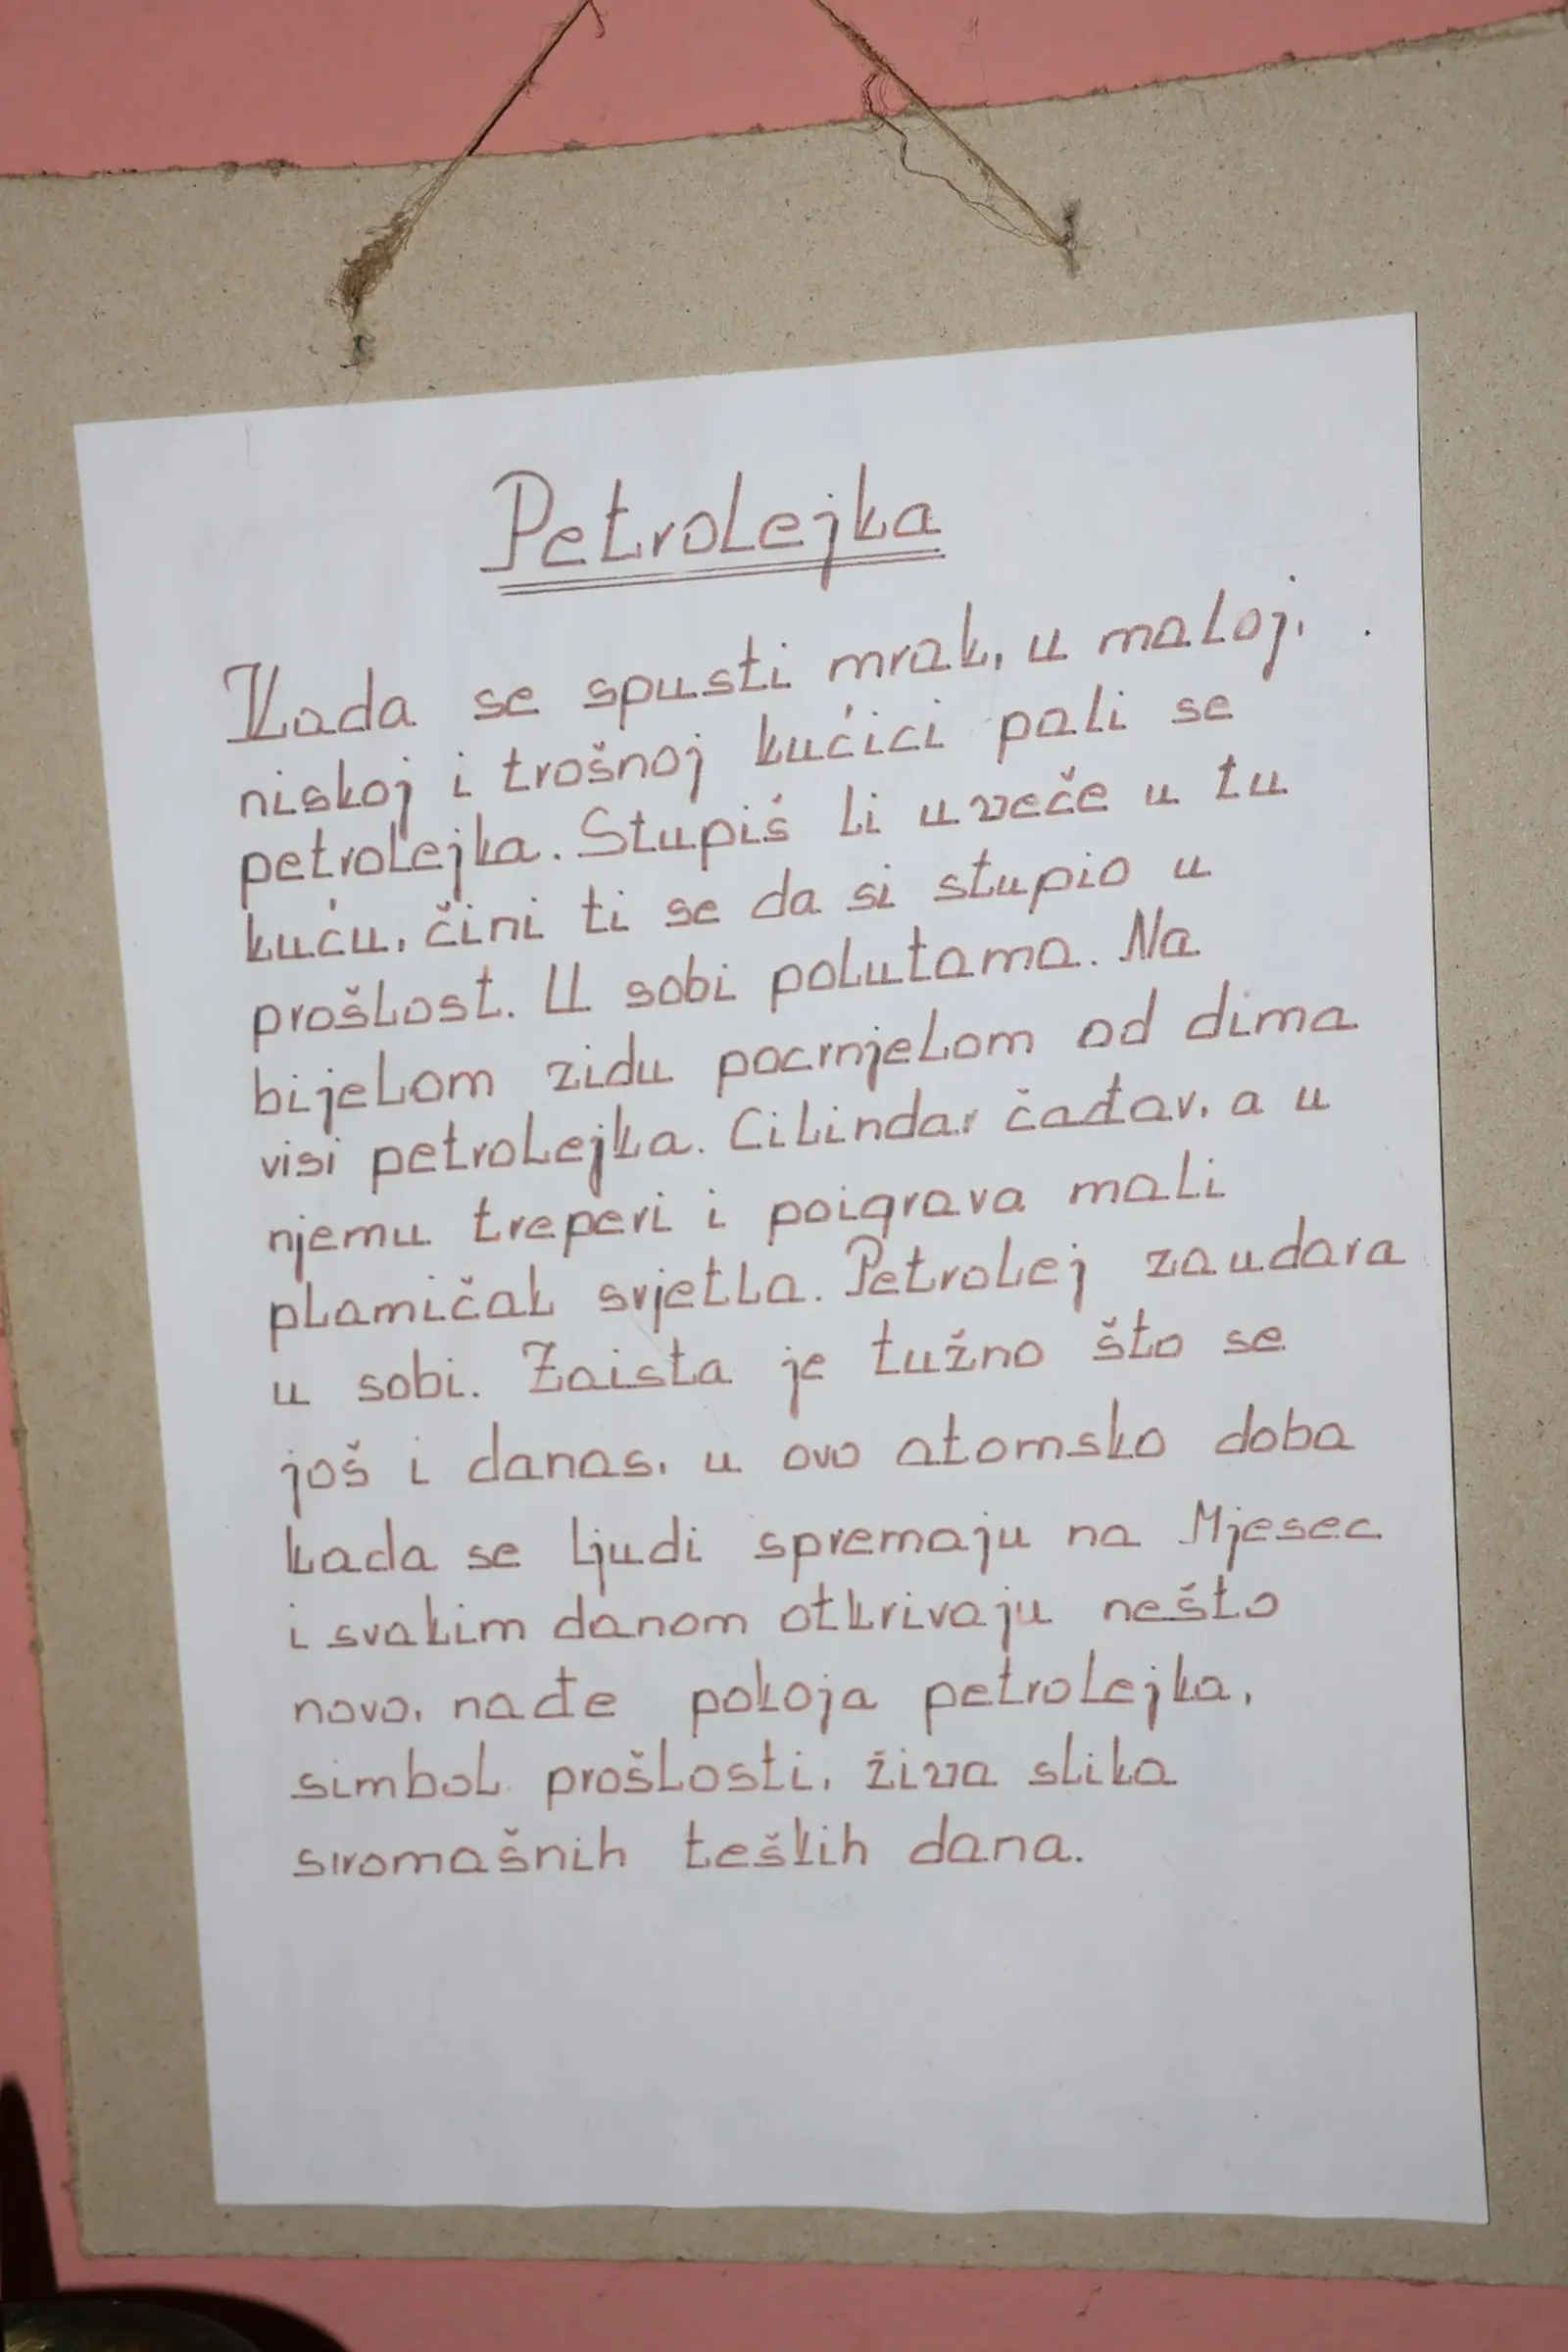 Petrolejka
Kada se spusti mrak, u maloj,
niskoj i trošnoj kućici pali se
petrolejka. Stupiš li uveče u tu
kuću, čini ti se da si stupio u
prošlost. U sobi polutama. Na
bijelom zidu pocrnjelom od dima
visi petrolejka. Cilindar čađav, a u
njemu treperi i poigrava mali
plamičak svjetla. Petrolej zaudara
u sobi. Zaista je tužno što se
još i danas, u ovo atomsko doba
kada se ljudi spremaju na Mjesec
i svakim danom otkrivaju nešto
novo, nađe pokoja petrolejka,
simbol prošlosti, živa slika
siromašnih teških dana.